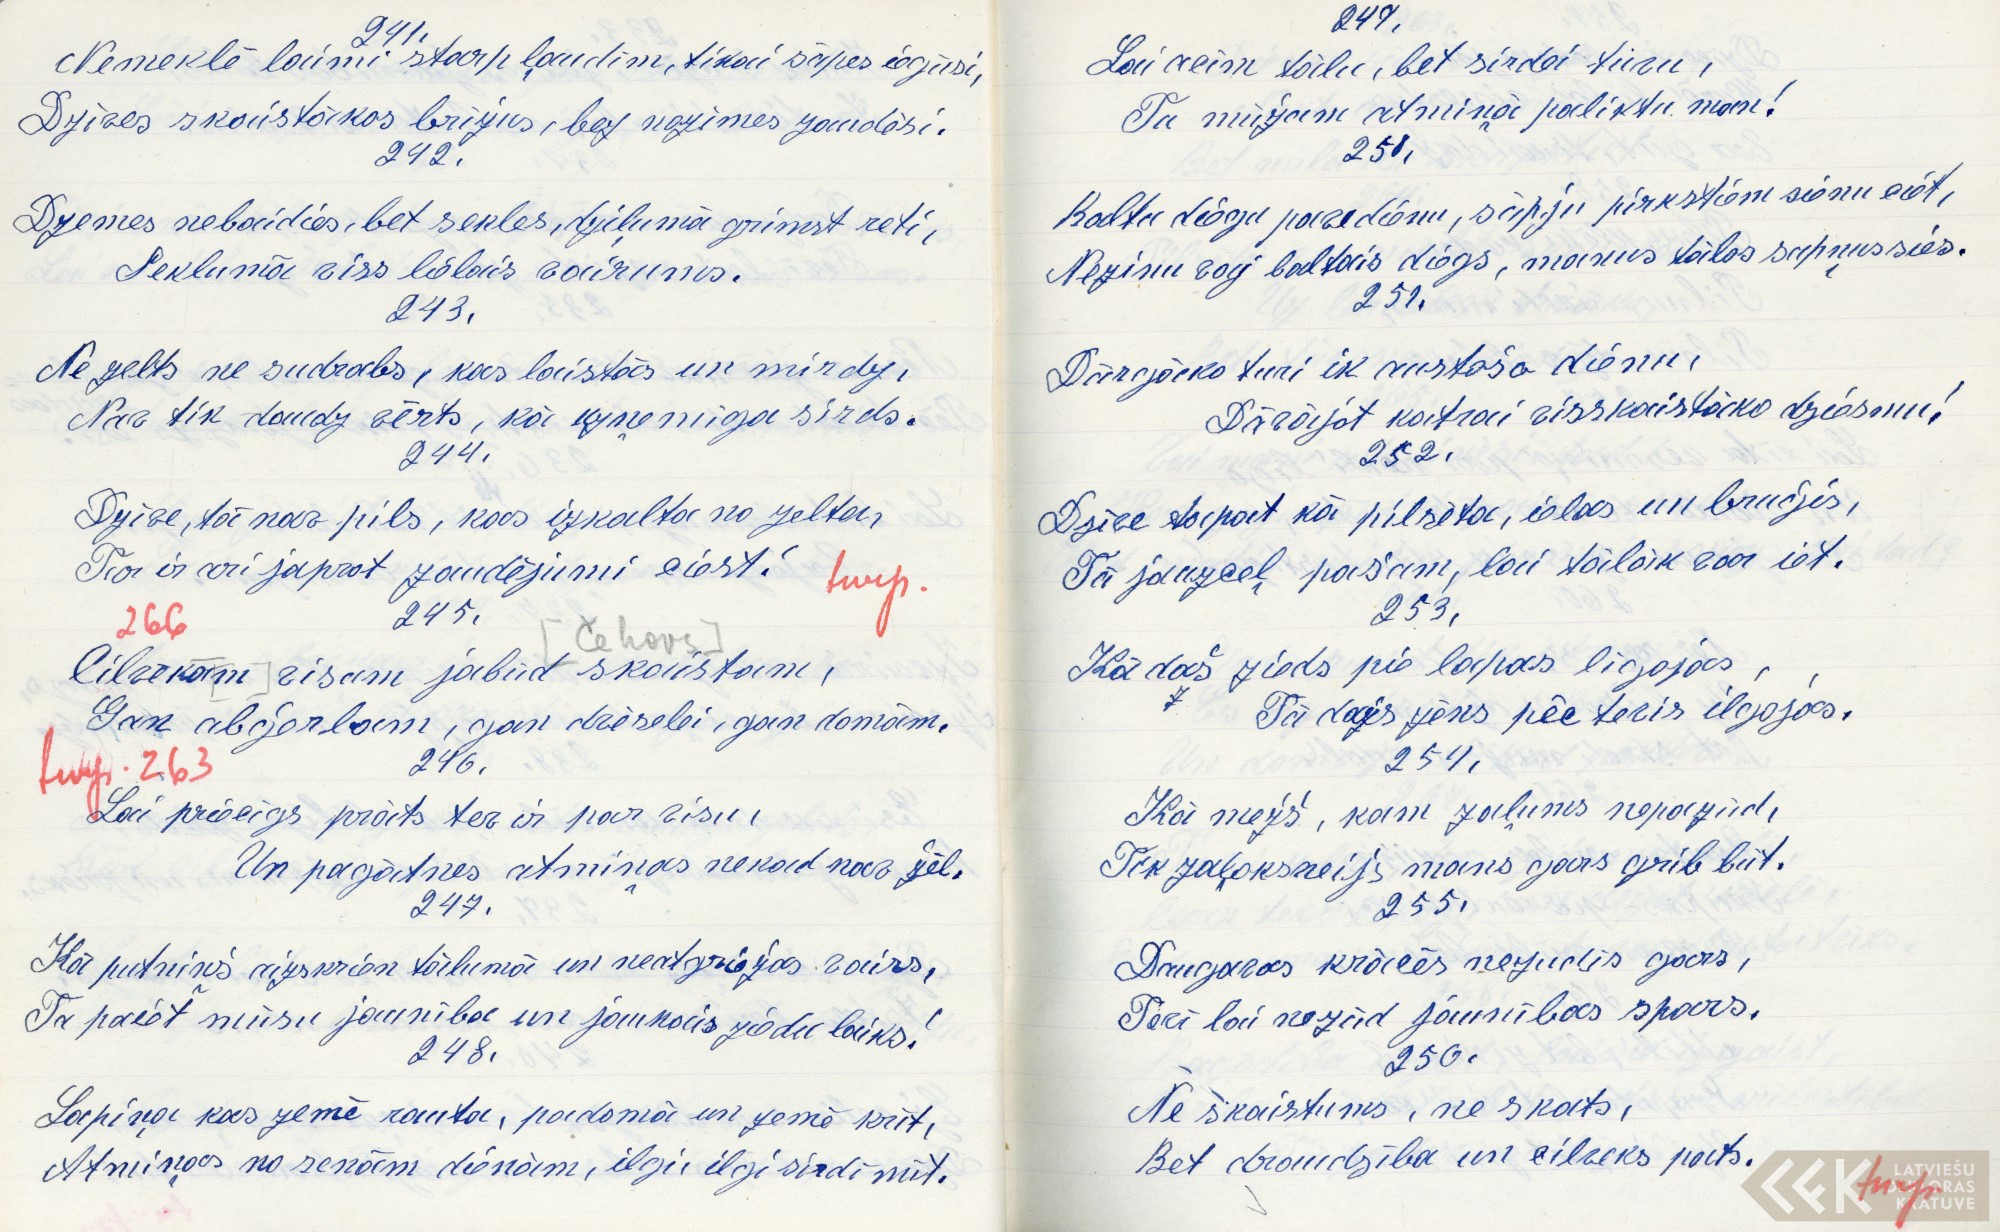 241.
Nemeklē laimi starp ļaudīm, tikai sāpes iegūsi,
Dzīves skaistākos brīžus, bez nozīmes zaudēsi.
242.
Dzelmes nebaidies, bet sekles, dziļumā grimst reti,
Seklumā viss lēlais vairums.
243.
Ne zelts ne sudrabs, kas laistās un mirdz,
Nav tik daudz vērts, kā cēla sirds.
244.
Dzīve, tā nav pils, kas izkalta no zelta,
Tur ir arī japrot zaudējumi ciest!
turp.
245.
266
[Čehovs]
Cilvekam visam jabūt skaistam,
Gan abģerbam, gan dvēselei, gan domām.
246.
turp. 263
Lai priecīgs prāts tev ir par visu,
Un pagātnes atmiņas nekad nav žēl.
247.
Kā putniņš aizskrien tālumā un neatgriežas vairs,
Tā paiet mūsu jaunība un jaukais ziedu laiks!
248.
Lapiņa kas zemē rauta, padomā un zemē krīt,
Atmiņas no senām dienām, ilgi, ilgi sirdī mīt.
249.
Lai acīm tālu, bet sirdei tuvu,
Tu mūžam atmiņā paliktu man!
250.
Baltu diegu pavedienu, sāpju pirkstiem sienu ciet,
Nezinu vaj baltais diegs, manus tālos sapņus sies.
251.
Dārgāko turi ik austošo dienu,
Dāvājot katrai visskaistāko dziesmu!
252.
Dzīve tāpat kā pilsēta, ielas un bruģis,
Tā jauzceļ pašam, lai tālāk var iet.
253.
Kā daš zieds pie lapas līgojās,
ž
Tā dažs zēns pēc tevis ilgojās.
254.
Kā mežš, kam zaļums nepazūd,
Tik zaļoksneijs mans gars grib būt.
255.
Daugavas krācēs nezudīs gars,
Tevī lai nezūd jaunības spars.
256.
Ne skaistums, ne skats,
Bet draudzība un cilveks pats.
turp.
LATVIEŠU
FOLKLORAS
KRĀTUVE